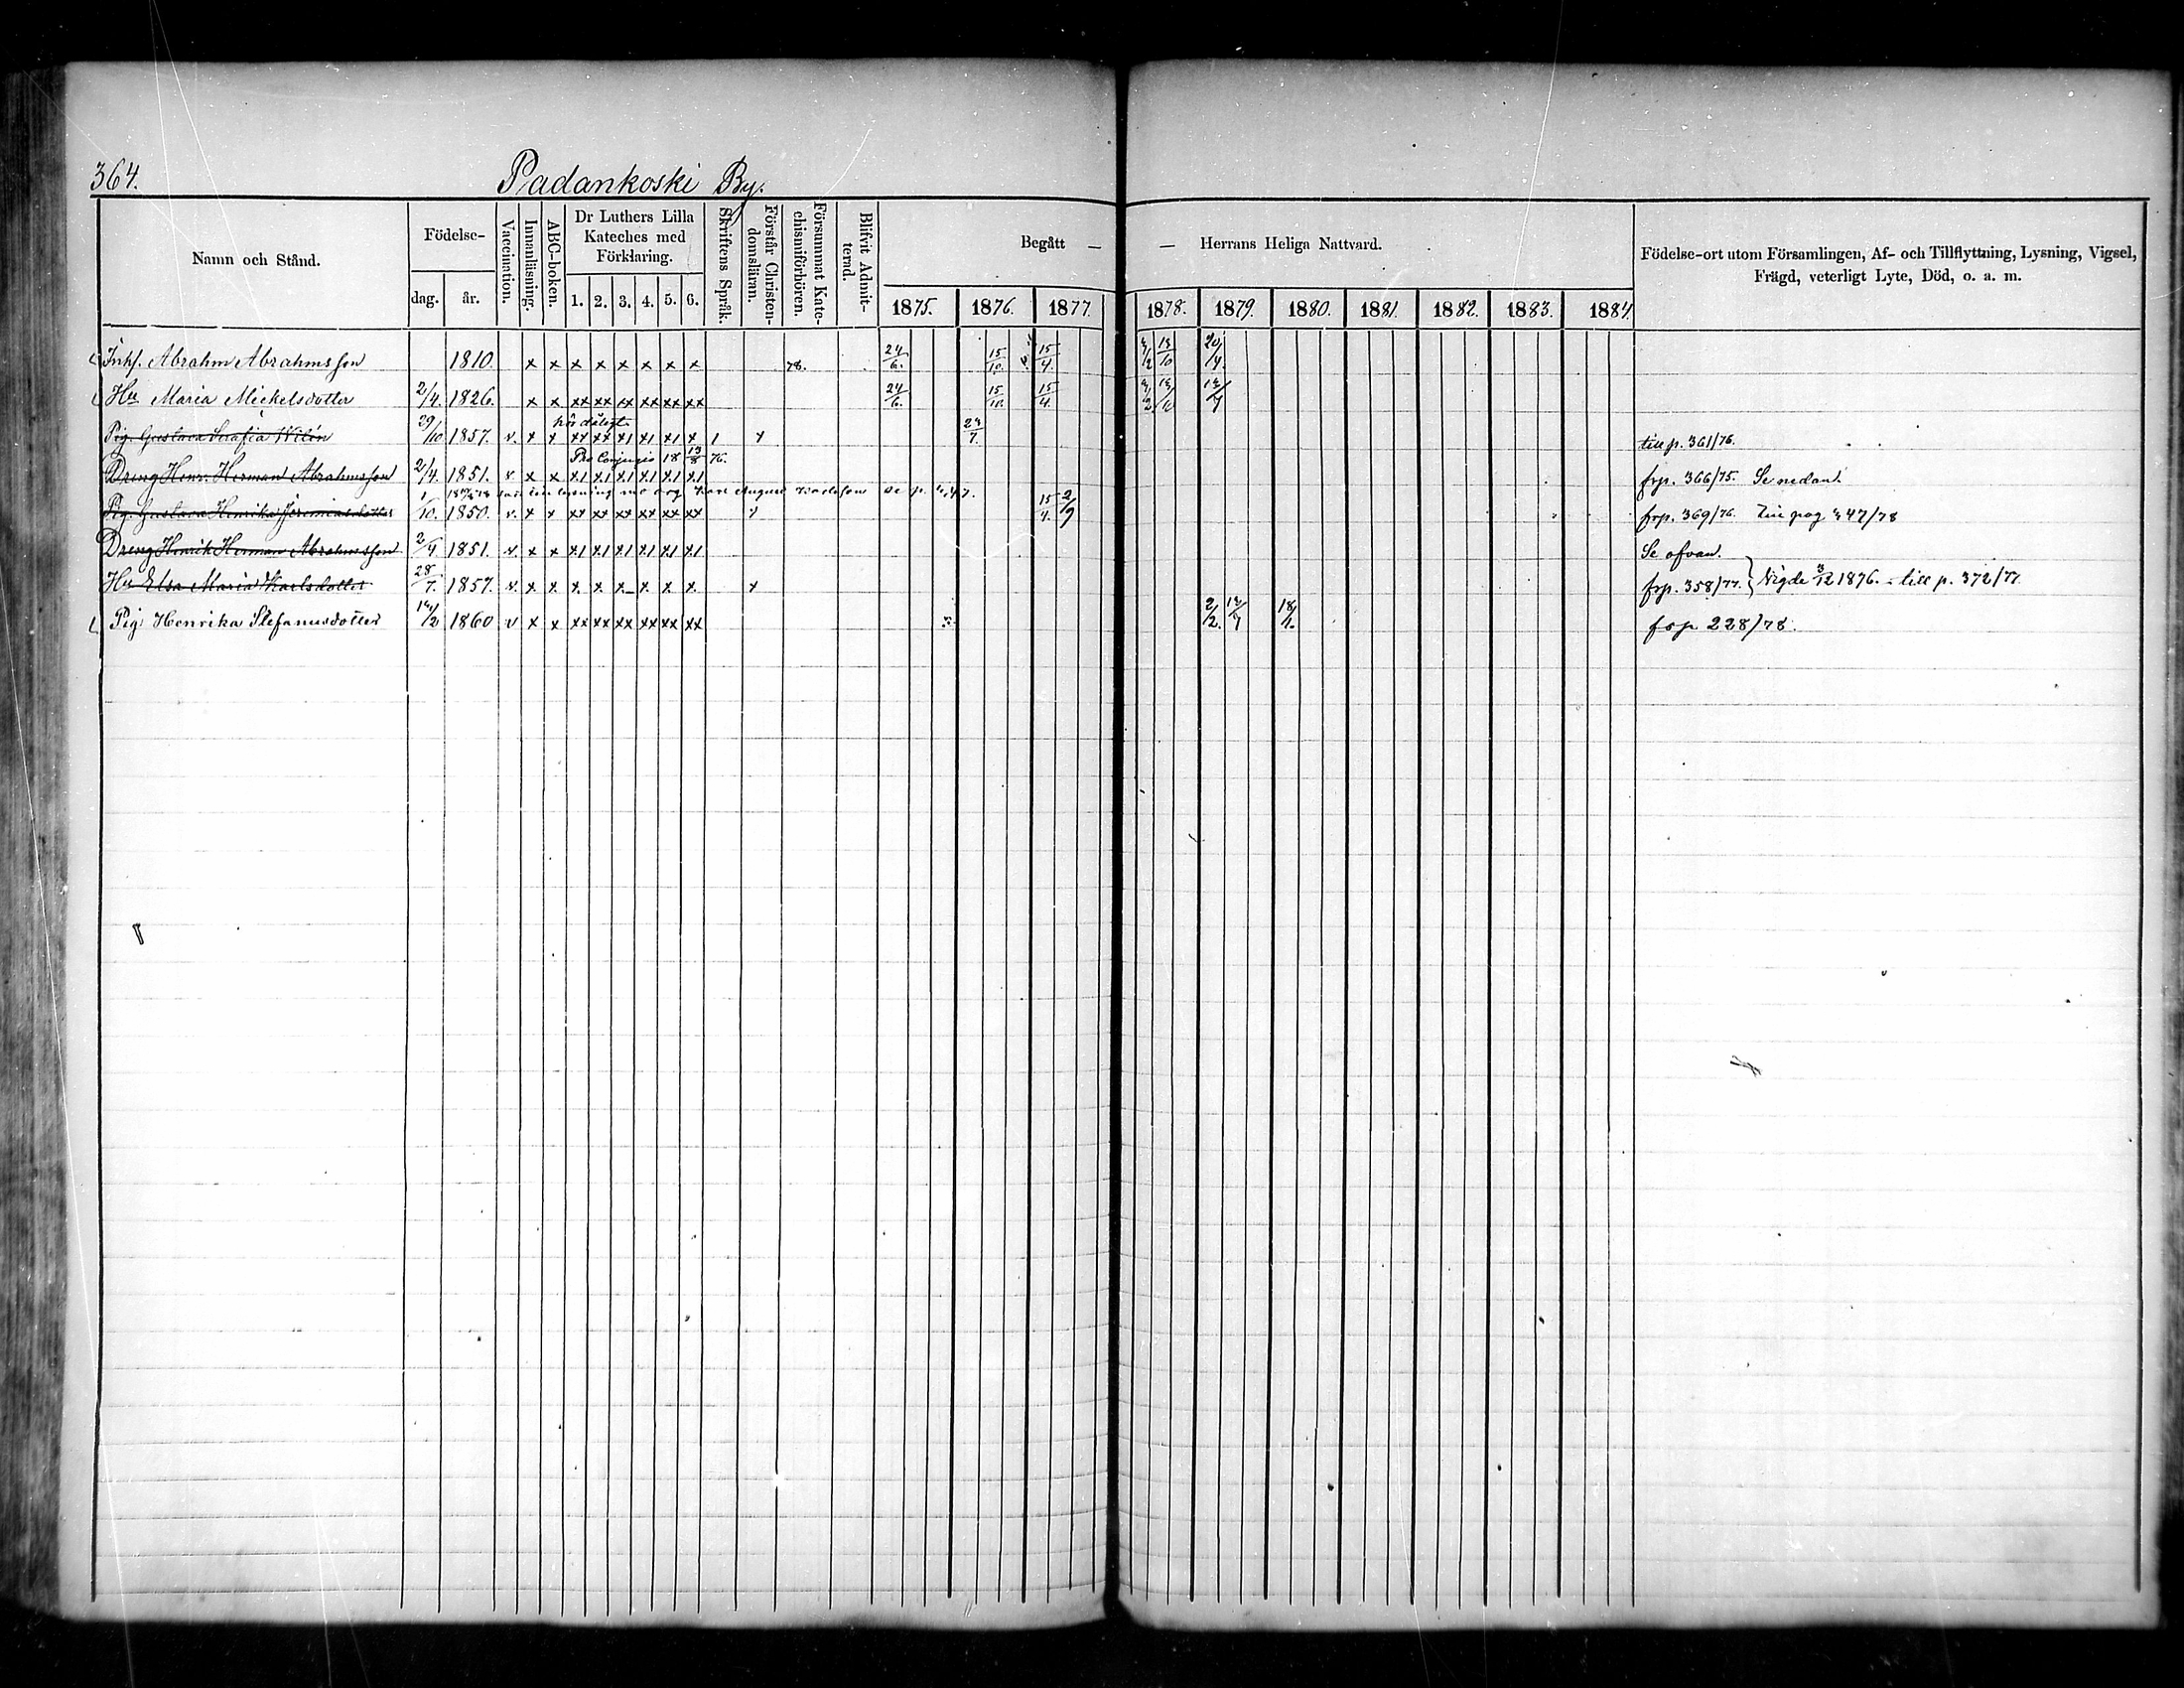 364.
Padankoski By.
Namn och Stånd.
Födelse-
dag. år.
Vaccination.
Innanläsning.
ABC-boken.
Dr Luthers Lilla
Kateches med
Förklaring.
1. 2. 3. 4. 5. 6.
Skriftens Språk.
Förstår Christen-
domsläran.
Försummat Kate-
chismiförhören.
Blifvit Admit-
terad.
Begått — — Herrans Heliga Nattvard.
1875. 1876. 1877. 1878. 1879. 1880. 1881. 1882. 1883. 1884.
Födelse-ort utom Församlingen, Af- och Tillflyttning, Lysning, Vigsel,
Frägd, veterligt Lyte, Död, o. a. m.
Inhs. Abrahm Abrahmsson 1810. x x x x x x x x 78. 24/6. 15/10. 15/4.
Hu Maria Mickelsdotter 2/4. 1826. x x xx xx xx xx xx xx 24/6. 15/10. 15/4.
hör dåligt
Pig. Gustava Serafia Wilén 29/10 1857. v. x x till p. 361/76.
Pro Conjugio 18 13/8 76.
Dreng Henr. Herman Abrahmsson 2/4. 1851. v x x x1 x1 x1 x1 x1 x1 frp. 366/75. Se nedant
lysning med August Karlsson se p.
Pig. Gustava Henrika Jeremiasdotter 1/10. 1850. v. x x xx xx xx xx xx xx 15/4. 2/9 frp. 369/76.
Dreng Henrik Herman Abrahmsson 2/4 1851. v. x x x1 x1 x1 x1 x1 x1 Se ofvan.
Hu Elsa Maria Karlsdotter 28/7. 1857. v. x x x x x x x x x frp. 358/77. Vigde 3/12 1876. - till p. 372/77
Pig Henrika Stefanusdotter 1860 v x x xx xx xx xx xx xx 2/2. 18/1. frp 228/78.